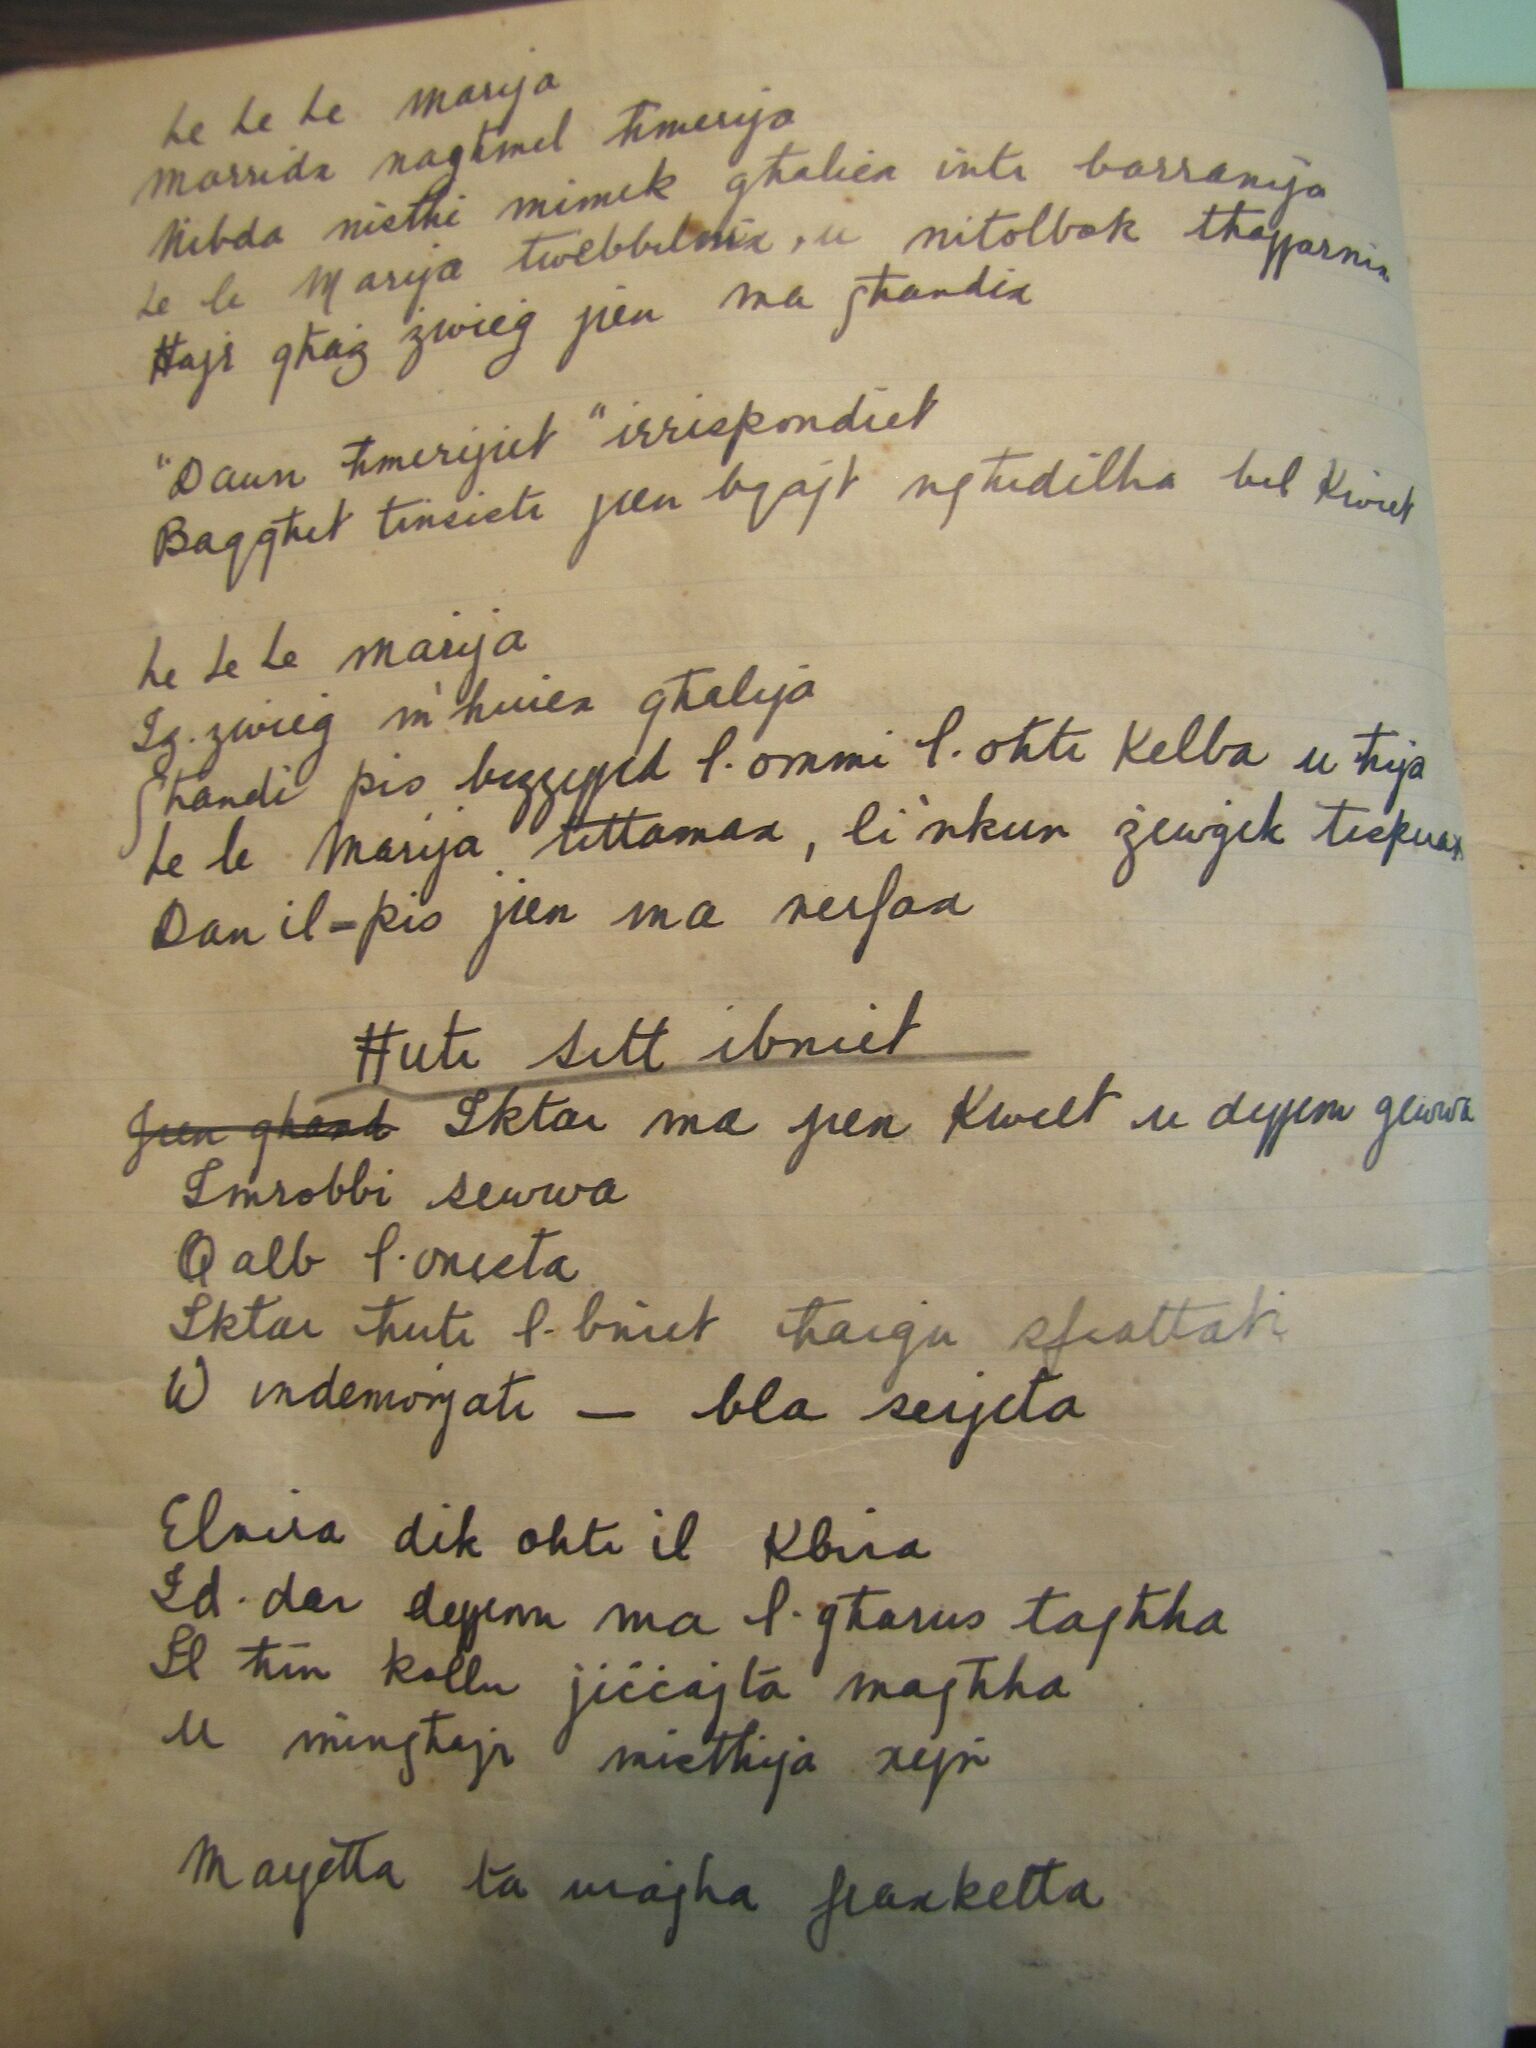 Le Le Le Marija
Marrida nagħmel ħmerija
Nibda nistħi minnek għaliex inti barranija
Le le Marija twebbilnix, u nitolbok tħajjarnix
Ħajr għaż żwieġ jien ma għandix
"Dawn ħmerijiet" irrispondiet
Baqgħet tinsisti jien bqajt ngħidilha bil kwiet
Le Le Le Marija
Iż-żwieġ m'huiex għalija
Għandi pis bizzejjed l-ommi l-oħti kelba u ħija
Le le Marija tittamax, li nkun żewġek tispurax
Dan il-pis jien ma nerfax
Ħuti sitt ibniet
Iktar ma jien kwiet u dejjem ġewwa
Imrobbi sewwa
Qalb l-onesta
Iktar ħuti l-bniet ħarġu sfrattati
W indemonjati - bla serjeta
Elvira dik oħti il Kbira
Id-dar dejjem ma l-għarus tagħha
Il ħin kollu jiċċajta magħha
U mingħajr mistħija xejn
Marjetta ta wiċċha fraxketta